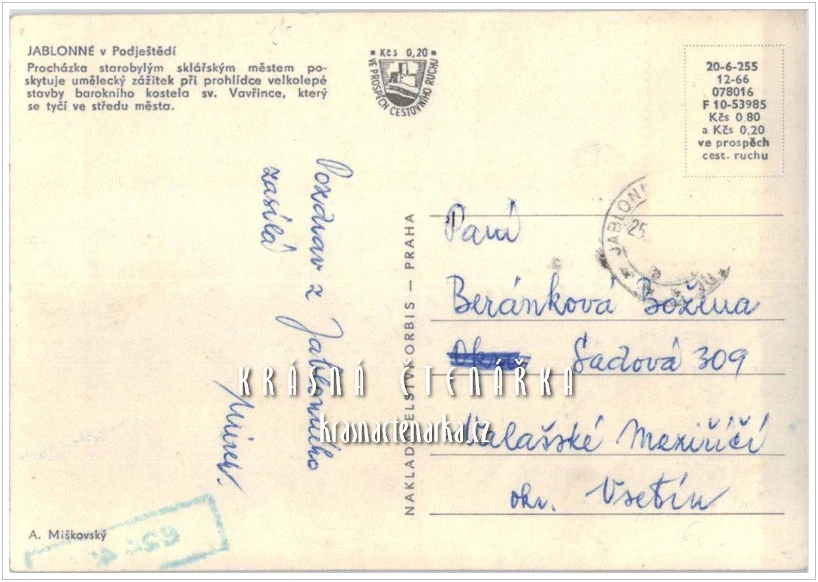 JABLONNÉ v Podještědí
Procházka starobylým sklářským městem po-
skytuje umělecký zážitek při prohlídce velkolepé
stavby barokního kostela sv. Vavřince, který
se tyčí ve středu města.
* Kčs 0,20 *
VE PROSPĚCH CESTOVNÍHO RUCHU
20-6-255
12-66
078016
F 10-53985
Kčs 0.80
a Kčs 0,20
ve prospěch
cest. ruchu
Pozdrav z Jablonného
zasílá
NAKLADATELSTVÍ ORBIS — PRAHA
JABLONN
25.
Paní
Beránková Božena
Sadová 309
Valašské Meziříčí
okr. Vsetín
KRÁSNÁ ČTENÁŘKA
krasnactenarka.cz
A. Miškovský